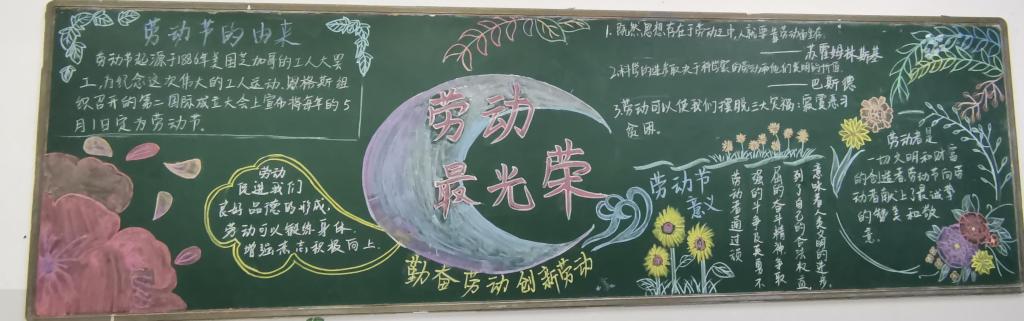 劳动节的由来
劳动节起源于1886年美国芝加哥的工人大罢
工,为纪念这次伟大的工人运动,恩格斯组
织召开的第二国际成立大会上宣布将每年的5
月1日定为劳动节.
劳动
促进我们
良好品德的形成.
劳动可以锻炼身体.
增强意志积极向上
劳动
最光荣
勤奋劳动 创新劳动
1.既然思想存在于劳动之中,人就要靠劳动而生存.
——苏霍姆林斯基
2.科学的进步取决于科学家的劳动和他们发明的价值
——巴斯德
3.劳动可以使我们摆脱三大灾祸:寂寞恶习
贫困.
劳动节
意义
意味着人类文明的进步.
到了自己的合法权益
屈的奋斗精神争取
强的斗争以英勇不
劳动者通过顽
劳动者是
一切文明和财富
的创造者劳动节向劳
动者献上最诚挚
的赞美和敬
意.